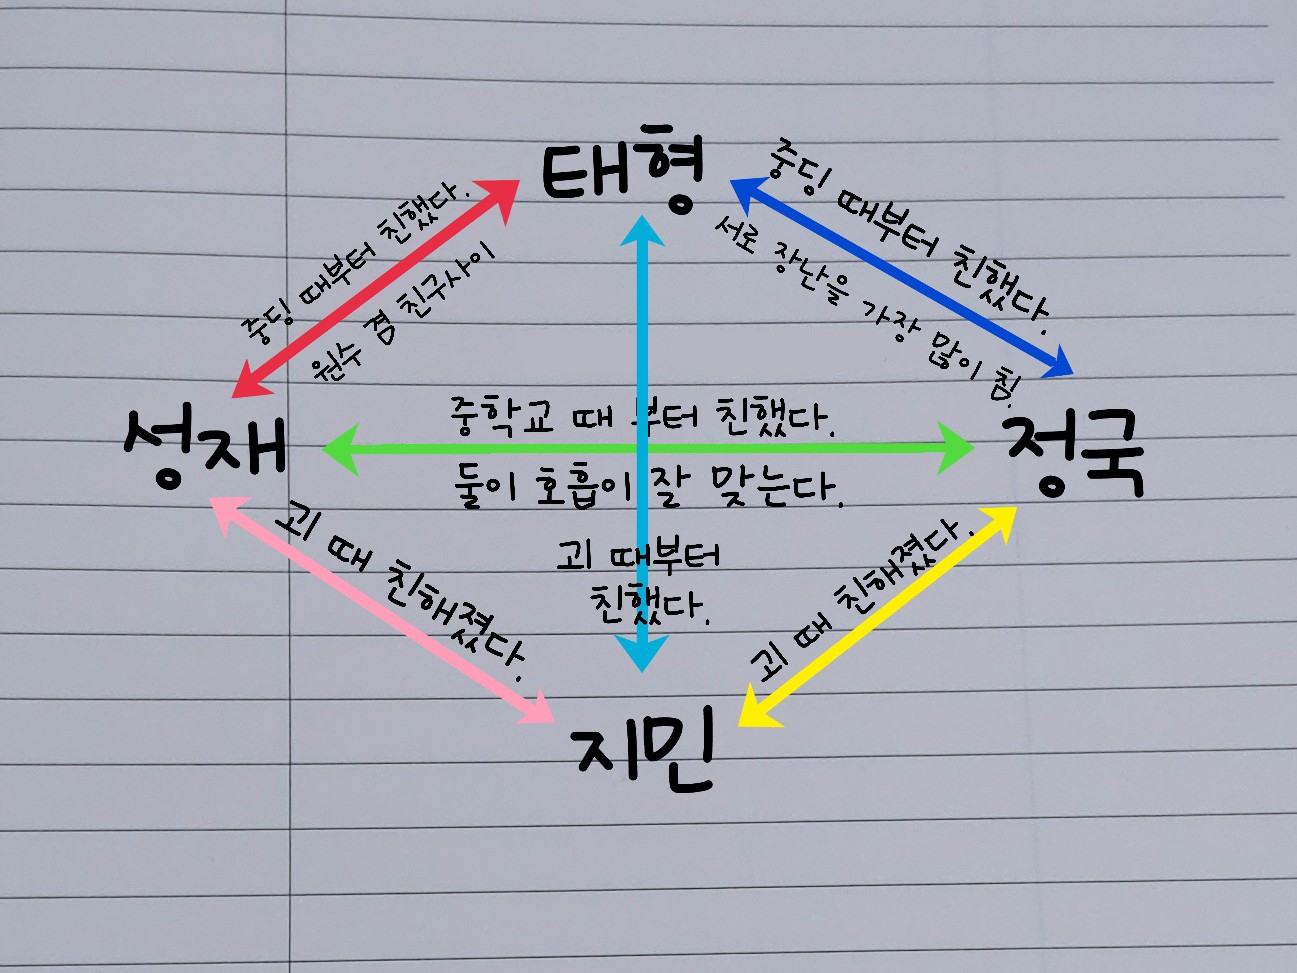 태형
중딩 때부터 친했다.
원수 겸 친구사이
중딩 때부터 친했다.
서로 장난을 가장 많이 침.
성재
중학교 때 부터 친했다.
둘이 호흡이 잘 맞는다.
정국
괴 때 친해졌다.
괴 때부터
친했다.
괴 때 친해졌다.
지민